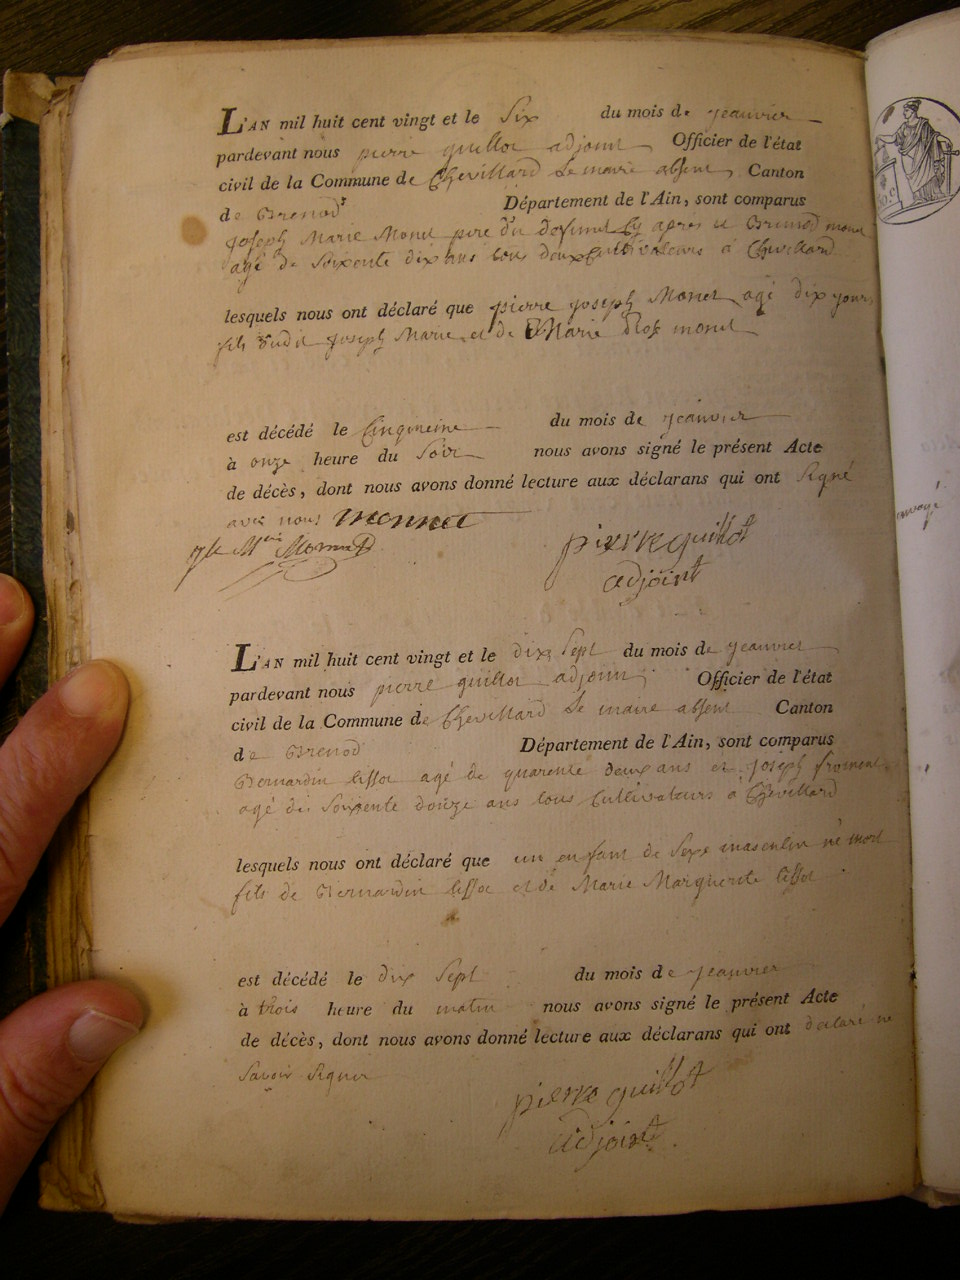 L'AN mil huit cent vingt et le Six du mois de jeanvier
pardevant nous pierre guillot adjoint Officier de l'état
civil de la Commune de Chevillard Le maire absent, Canton
de Brenod Département de l'Ain, sont comparus
Joseph Marie Monet pere du defunet cy après et monet
agé de Soixente dix ans tous deux Cultivateurs à Chevillard
lesquels nous ont déclaré que pierre joseph Monet agé dix jours
fils dudit joseph Marie et de Marie monet
est décédé le Cinqmeine du mois de jeanvier
à onze heure du Soir nous avons signé le présent Acte
de décès, dont nous avons donné lecture aux déclarans qui ont Signé
avec nous monnet
pierre guillot
adjoint
L'AN mil huit cent vingt et le dix Sept du mois de jeanvier
pardevant nous pierre guillot adjoint Officier de l'état
civil de la Commune de Chevillard Le maire absent Canton
de Brenod Département de l'Ain, sont comparus
Bernardin lissot agé de quarente deux ans et joseph froment
agé de Soixente douze ans tous Cultivateurs à Chevillard
lesquels nous ont déclaré que un enfant de Sexe masculin né mort
fils de Bernardin lissot et de Marie Marguerite lissot
est décédé le dix Sept du mois de jeanvier
à trois heure du matin nous avons signé le présent Acte
de décès, dont nous avons donné lecture aux déclarans qui ont declaré ne
Savoir Signer
pierre guillot
adjoint